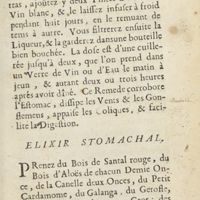 tas, ajoûtez y deux
Vin blanc, & le laissez infuser à froid
pendant huit jours, en le remuant de
tems à autre. Vous filtrerez ensuite la
Liqueur, & la garderez dans une bouteille
bien bouchée. La dose est d'une cuille-
rée jusqu'à deux, que l'on prend dans
un Verre de Vin ou d'Eau le matin à
jeun, & autant deux ou trois heures
après avoir dîné. Ce Remede corrobore
l'Estomac, dissipe les Vents & les Gon-
flemens, appaise les Coliques, & faci-
lite la Digestion.
ELIXIR STOMACHAL.
PRenez du Bois de Santal rouge, du
Bois d'Aloës de chacun Demie On-
ce, de la Canelle deux Onces, du Petit
Cardamome, du Galanga, du Gerofle,